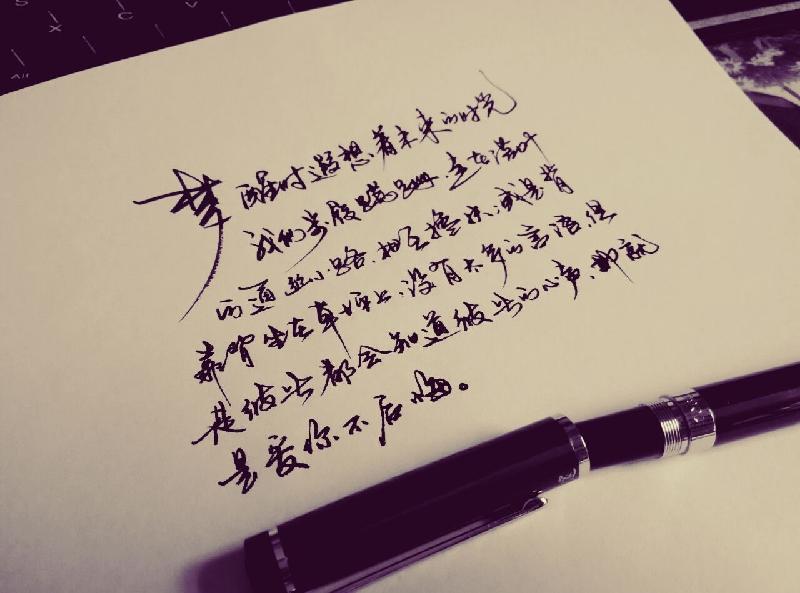 梦醒时遐想着未来的时光
我们步履蹒跚，走在落叶
的道路，相互搀扶，或是背
靠背坐在草坪上，没有太多的言语，但
是彼此都会知道彼此的心声，那就
是爱你不后悔。